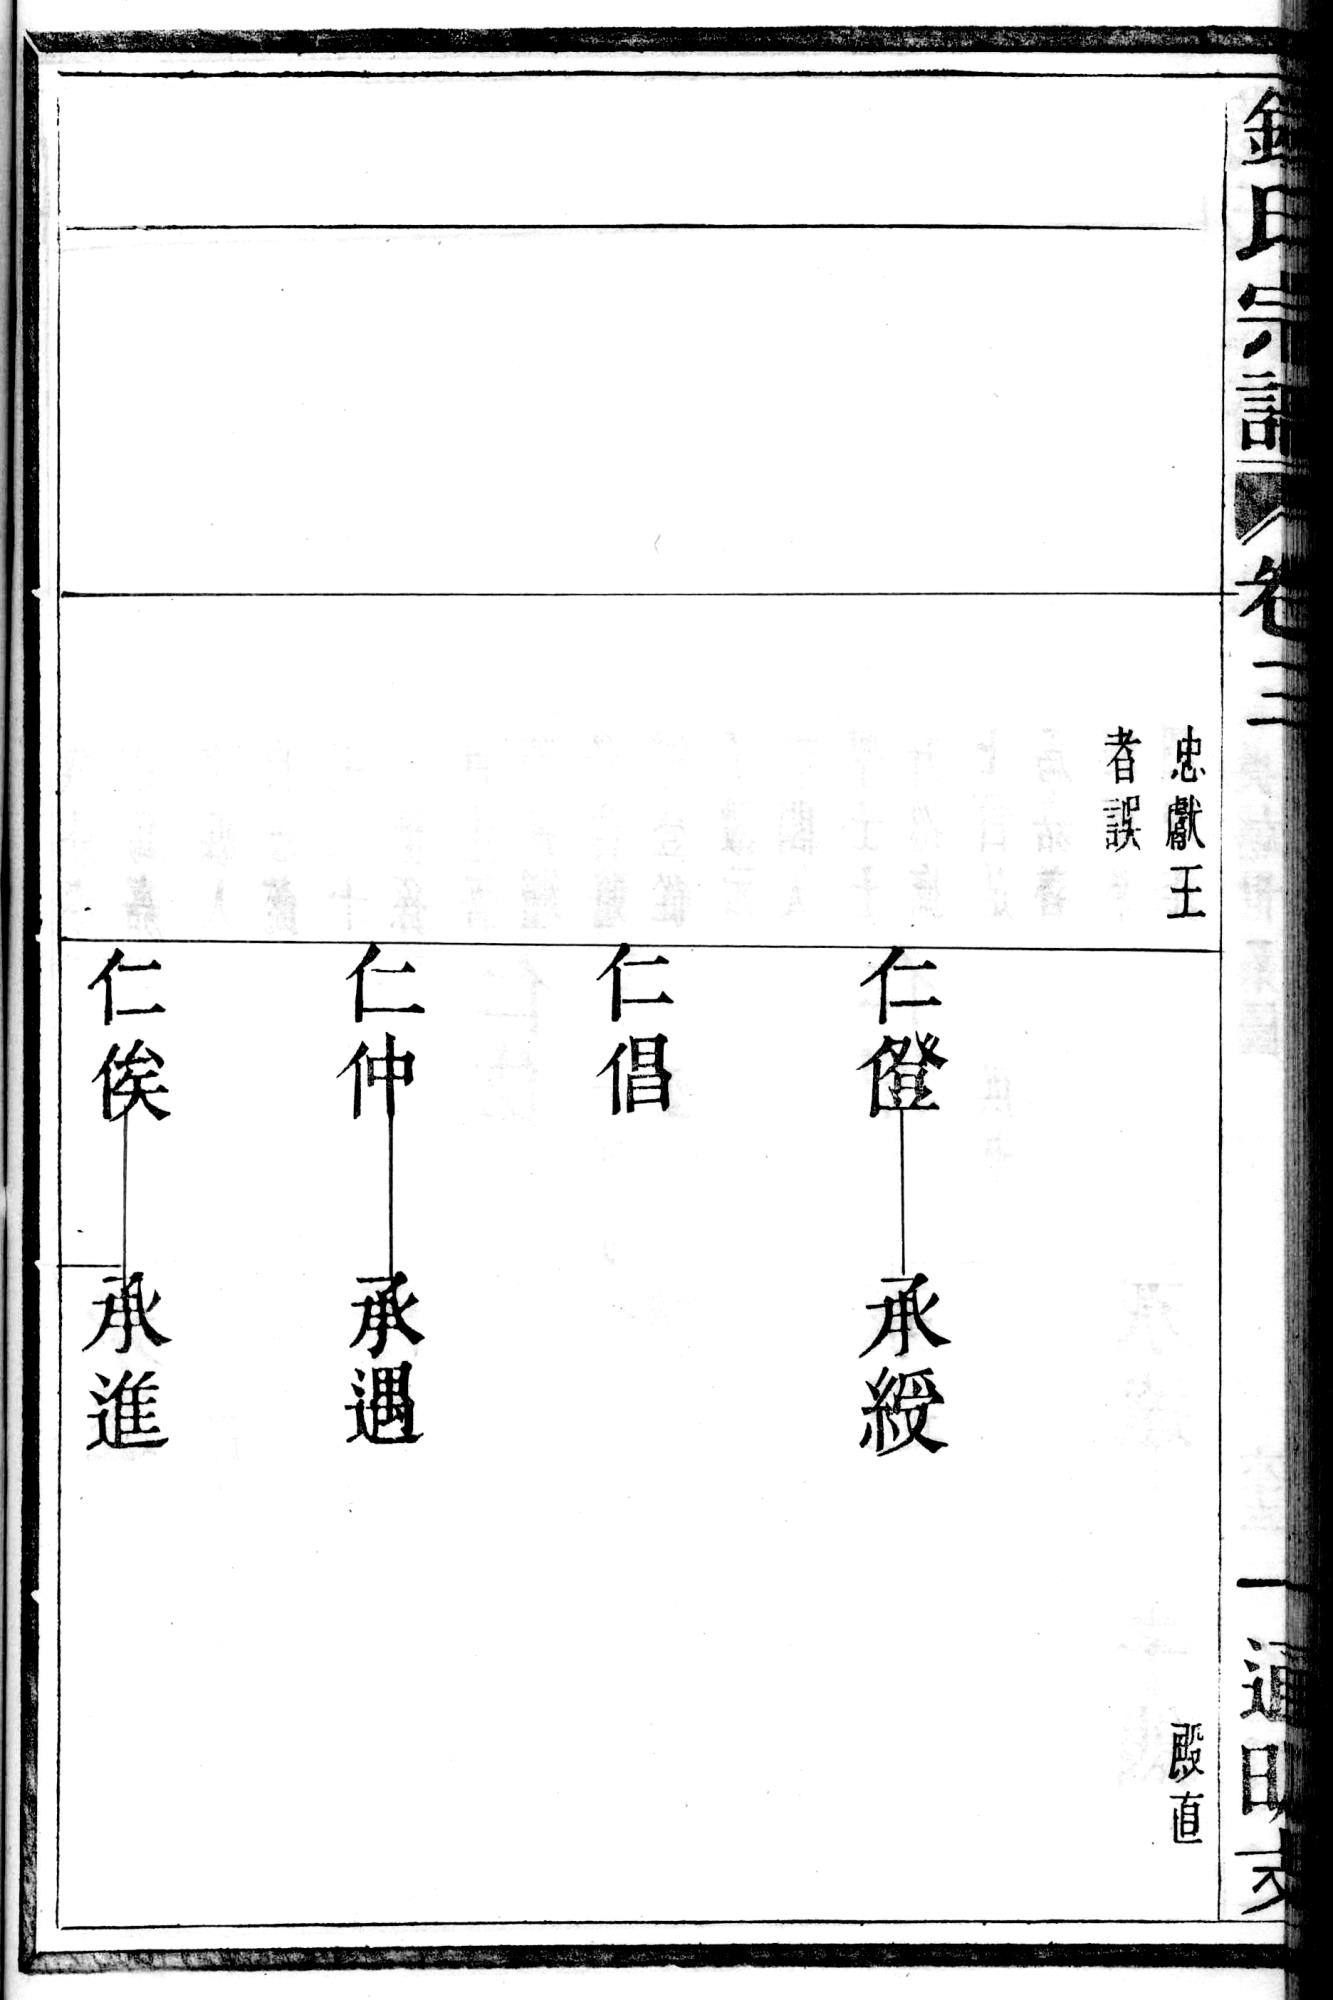 錢氏宗譜 卷三 一 通明支
忠獻王
者誤
殿直
仁㒁
承綬
仁倡
仁仲
承遇
仁俟
承進